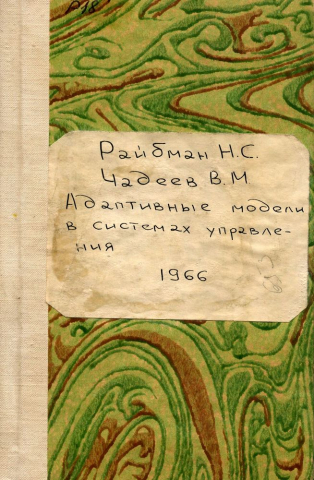 Р18
Райбман Н.С.
Чадеев В.М
Адаптивные модели
в системах управле-
ния
1966